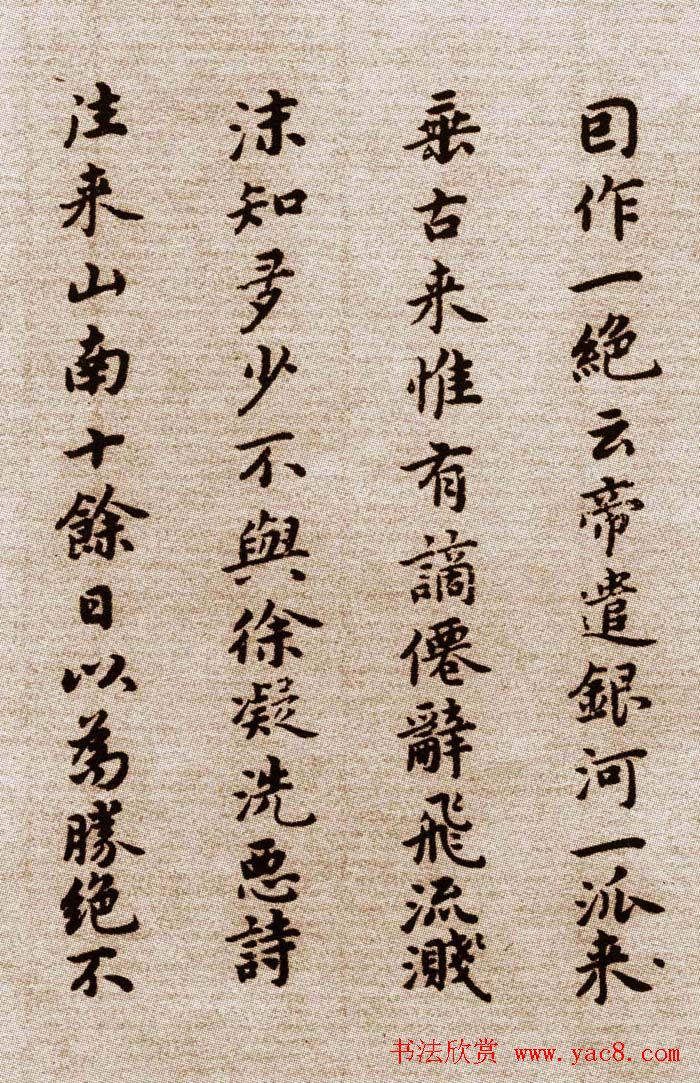 囙作一絶云帝遣銀河一派来
垂古来惟有謫僊辭飛流濺
沫知多少不與徐凝洗惡詩
往来山南十餘日以為勝绝不
书法欣赏 www.yac8.com